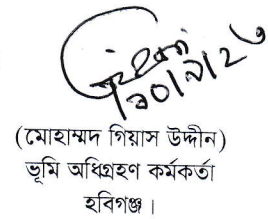 (মোহাম্মদ গিয়াস উদ্দীন)
ভূমি অধিগ্রহণ কর্মকর্তা
হবিগঞ্জ।